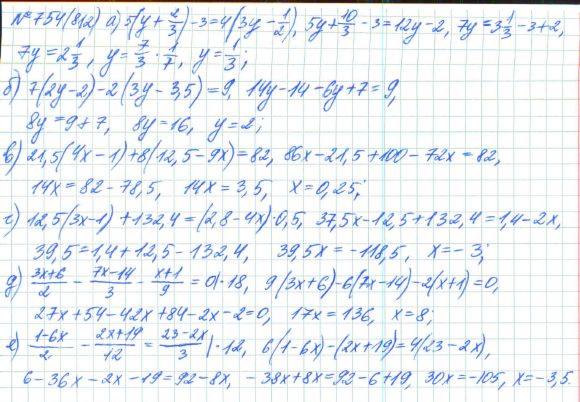 №754(812) а) 5(y+2/3)-3=4(3y-1/2), 5y+10/3-3=12y-2, 7y=3 1/3-3+2,
7y=2 1/3, y=7/3·1/7, y=1/3;
б) 7(2y-2)-2(3y-3,5)=9, 14y-14-6y+7=9,
8y=9+7, 8y=16, y=2;
в) 21,5(4x-1)+8(12,5-9x)=82, 86x-21,5+100-72x=82,
14x=82-78,5, 14x=3,5, x=0,25;
г) 12,5(3x-1)+132,4=(2,8-4x)·0,5, 37,5x-12,5+132,4=1,4-2x,
39,5=1,4+12,5-132,4, 39,5x=-118,5, x=-3;
д) (3x+6)/2-(7x-14)/3-(x+1)/9=0|·18, 9(3x+6)-6(7x-14)-2(x+1)=0,
27x+54-42x+84-2x-2=0, 17x=136, x=8;
е) (1-6x)/2-(2x+19)/12=(23-2x)/3|·12, 6(1-6x)-(2x+19)=4(23-2x),
6-36x-2x-19=92-8x, -38x+8x=92-6+19, 30x=-105, x=-3,5.